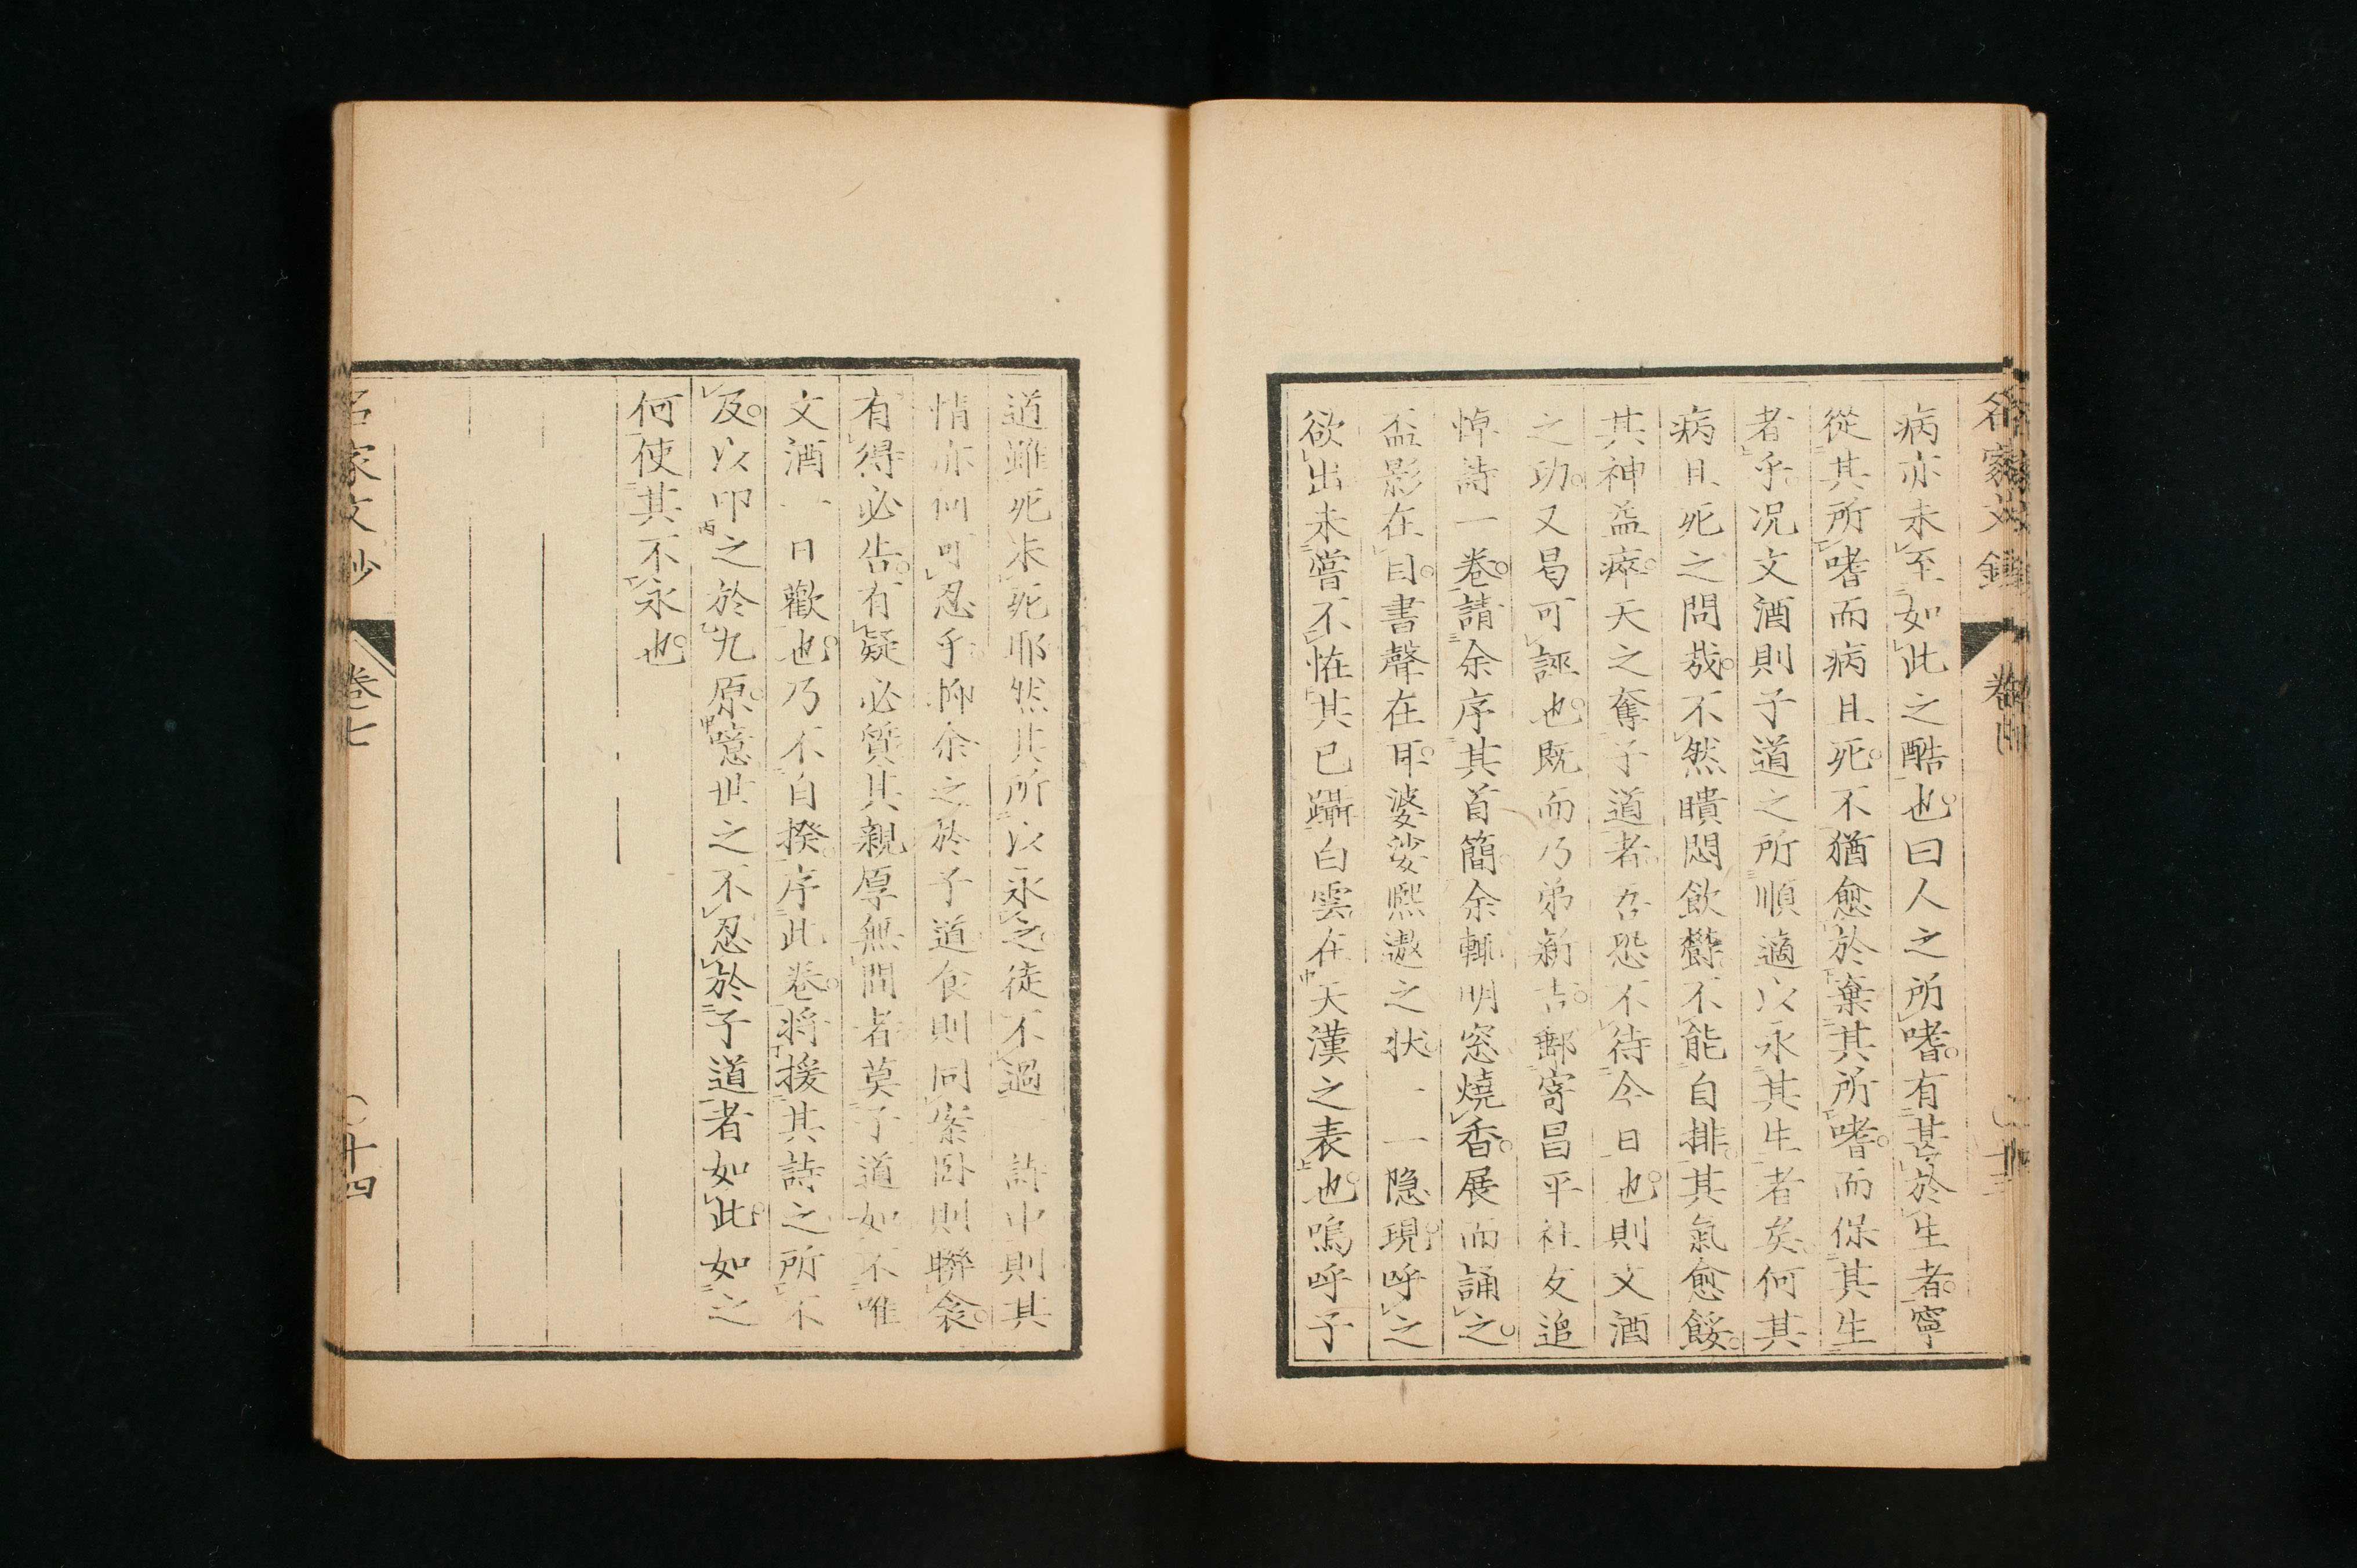 病亦未至如此之酷也曰人之所嗜有甚於生者寧
從其所嗜而病且死不猶愈於棄其所嗜而保其生
者乎况文酒則子道之所順適以永其生者矣何其
病且死之問哉不然瞶悶飲欝不能自排其氣愈餒
其神益瘁天之奪子道者吾恐不待今日也則文酒
之功又曷可誣也既而乃弟新吉郵寄昌平社友追
悼詩一卷請余序其首簡余輙明窓燒香展而誦之
盃影在目書聲在耳婆娑熈遨之状一一隐現呼之
欲出未嘗不怪其已躡白雲在天漢之表也嗚呼子
道雖死未死耶然其所以永之徒不過一詩中則其
情亦何可忍乎抑余之於子道食則同案卧則聯衾
有得必告有疑必質其親厚無間者莫子道如不唯
文酒一日歡也乃不自揆序此卷将援其詩之所不
及以叩之於九原噫世之不忍於子道者如此如之
何使其不永也
名家文抄
卷七
十四